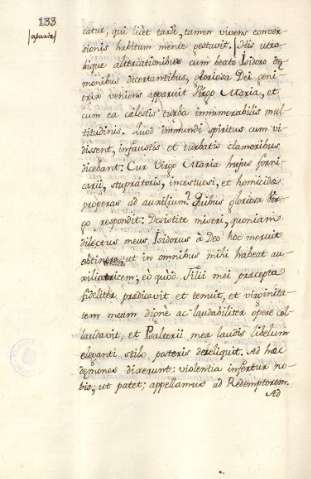 133
catur, qui licet tarde, tamen vivens conver-
sionis habitum merite postavit. Deis utro-
bique altercationibus cum beato Isidoro dę-
monibus dicertantibus, gloriosa Dei geni-
trix veniens apparuit Virgo Maria, et
cum ea cælestis turba innumerabilis mul-
titudinis. Quod inmundi spiritus cum vi-
dissent, infaustis et turbatis clamoribus
dicebant: Cur Virgo Maria hujus forni-
carii, stupratoris, incestuosi, et homicidæ
properas ad auxilium? Quibus gloriosa Vir-
go respondit: Desistite miseri, quoniam
dilectus meus Isidorus à Deo hoc meruit
obtinere, ut in omnibus mihi habeat au-
xiliatricem; eò quòd Filii mei præcepta
fideliter prædicavit et tenuit, et virginita-
tem meam dignè ac laudabiliter opere col-
laudavit, et Psalterii mea laudis libellum
eleganti stilo, posteris dereliquit. Ad hæc
dęmones dixerunt: violentia infertur no-
bis, ut patet; appellamus ad Redemptorem.
Ad